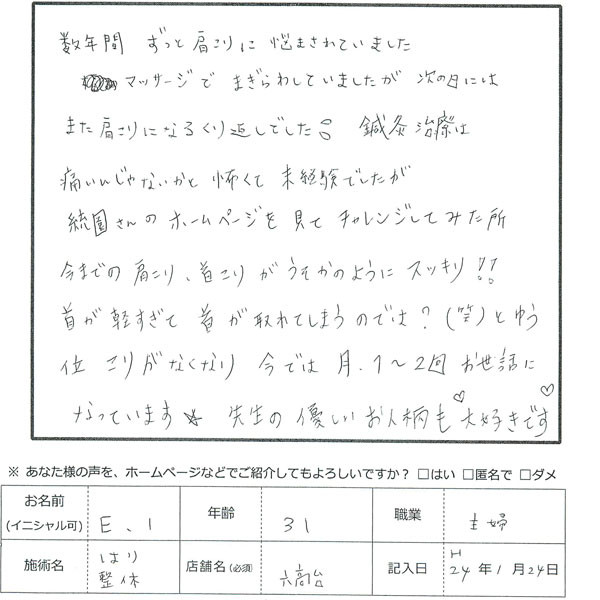 数年間 ずっと肩こりに悩まされていました
マッサージでまぎらわしていましたが 次の日には
また肩こりになるくり返しでした。 鍼灸治療は
痛いんじゃないかと 怖くて 未経験でしたが
統園さんのホームページを見て チャレンジしてみた所
今までの肩こり、首こりがうそかのように スッキリ!!
首が軽すぎて 首が取れてしまうのでは?(笑)とゆう
位 こりがなくなり 今では 月、1〜2回 お世話に
なっています☆ 先生の優しいお人柄も♡大好きです♡
※ あなた様の声を、ホームページなどでご紹介してもよろしいですか? □はい □匿名で □ダメ
お名前(イニシャル可) E、I 年齢 31 職業 主婦
施術名 はり 整体 店舗名(必須) 六高台 記入日 H24年1月24日